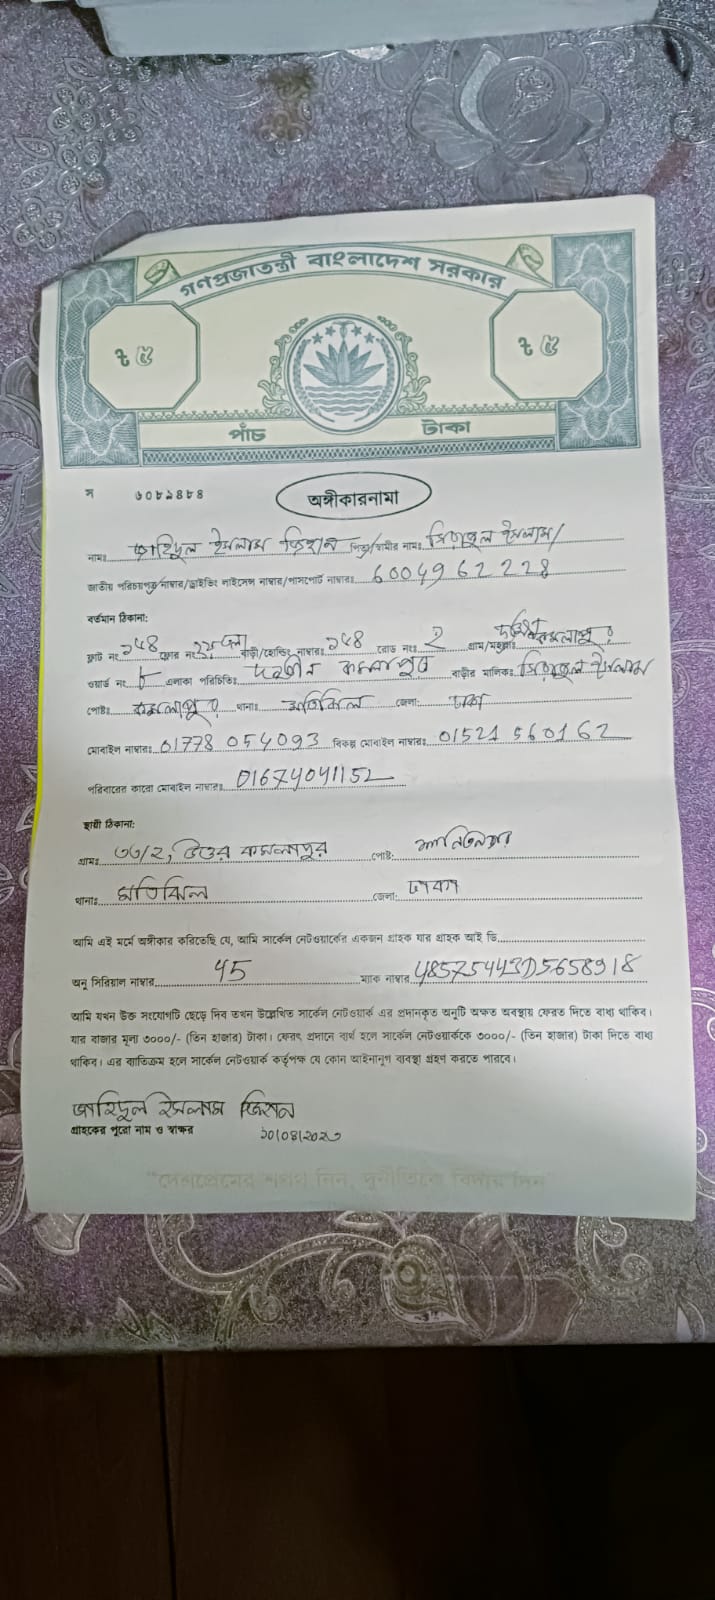 গণপ্রজাতন্ত্রী বাংলাদেশ সরকার
৳ ৫ ৳ ৫
পাঁচ টাকা
স ৬০৮৯৪৮৪
অঙ্গীকারনামা
নামঃ জাহিদুল ইসলাম জিহান পিতা/স্বামীর নামঃ সিরাজুল ইসলাম
জাতীয় পরিচয়পত্র নাম্বার/ড্রাইভিং লাইসেন্স নাম্বার/পাসপোর্ট নাম্বারঃ 6004962228
বর্তমান ঠিকানা:
ফ্লাট নং ১৫৪ ফ্লোর নংঃ বাড়ী/হোল্ডিং নাম্বারঃ ১৫৪ রোড নংঃ 2 গ্রাম/মহল্লাঃ দক্ষিণ কমলাপুর
ওয়ার্ড নং ৮ এলাকা পরিচিতিঃ দক্ষীন কমলাপুর বাড়ীর মালিকঃ সিরাজুল ইসলাম
পোষ্টঃ কমলাপুর থানাঃ মতিঝিল জেলা: ঢাকা
মোবাইল নাম্বারঃ 01778 054093 বিকল্প মোবাইল নাম্বারঃ 01521 560162
পরিবারের কারো মোবাইল নাম্বারঃ 01674041152
স্থায়ী ঠিকানা:
গ্রামঃ ৩৩/২, উত্তর কমলাপুর পোষ্ট:
থানাঃ মতিঝিল জেলা: ঢাকা
আমি এই মর্মে অঙ্গীকার করিতেছি যে, আমি সার্কেল নেটওয়ার্কের একজন গ্রাহক যার গ্রাহক আই ডি
অনু সিরিয়াল নাম্বার 45 ম্যাক নাম্বার 48575443D5658918
আমি যখন উক্ত সংযোগটি ছেড়ে দিব তখন উল্লেখিত সার্কেল নেটওয়ার্ক এর প্রদানকৃত অনুটি অক্ষত অবস্থায় ফেরত দিতে বাধ্য থাকিব।
যার বাজার মূল্য ৩০০০/- (তিন হাজার) টাকা। ফেরৎ প্রদানে ব্যর্থ হলে সার্কেল নেটওয়ার্ককে ৩০০০/- (তিন হাজার) টাকা দিতে বাধ্য
থাকিব। এর ব্যতিক্রম হলে সার্কেল নেটওয়ার্ক কর্তৃপক্ষ যে কোন আইনানুগ ব্যবস্থা গ্রহণ করতে পারবে।
জাহিদুল ইসলাম জিহান
গ্রাহকের পুরো নাম ও স্বাক্ষর ১০/০৪/২০২৩
"দেশপ্রেমের শপথ নিন, দুর্নীতিকে বিদায় দিন"